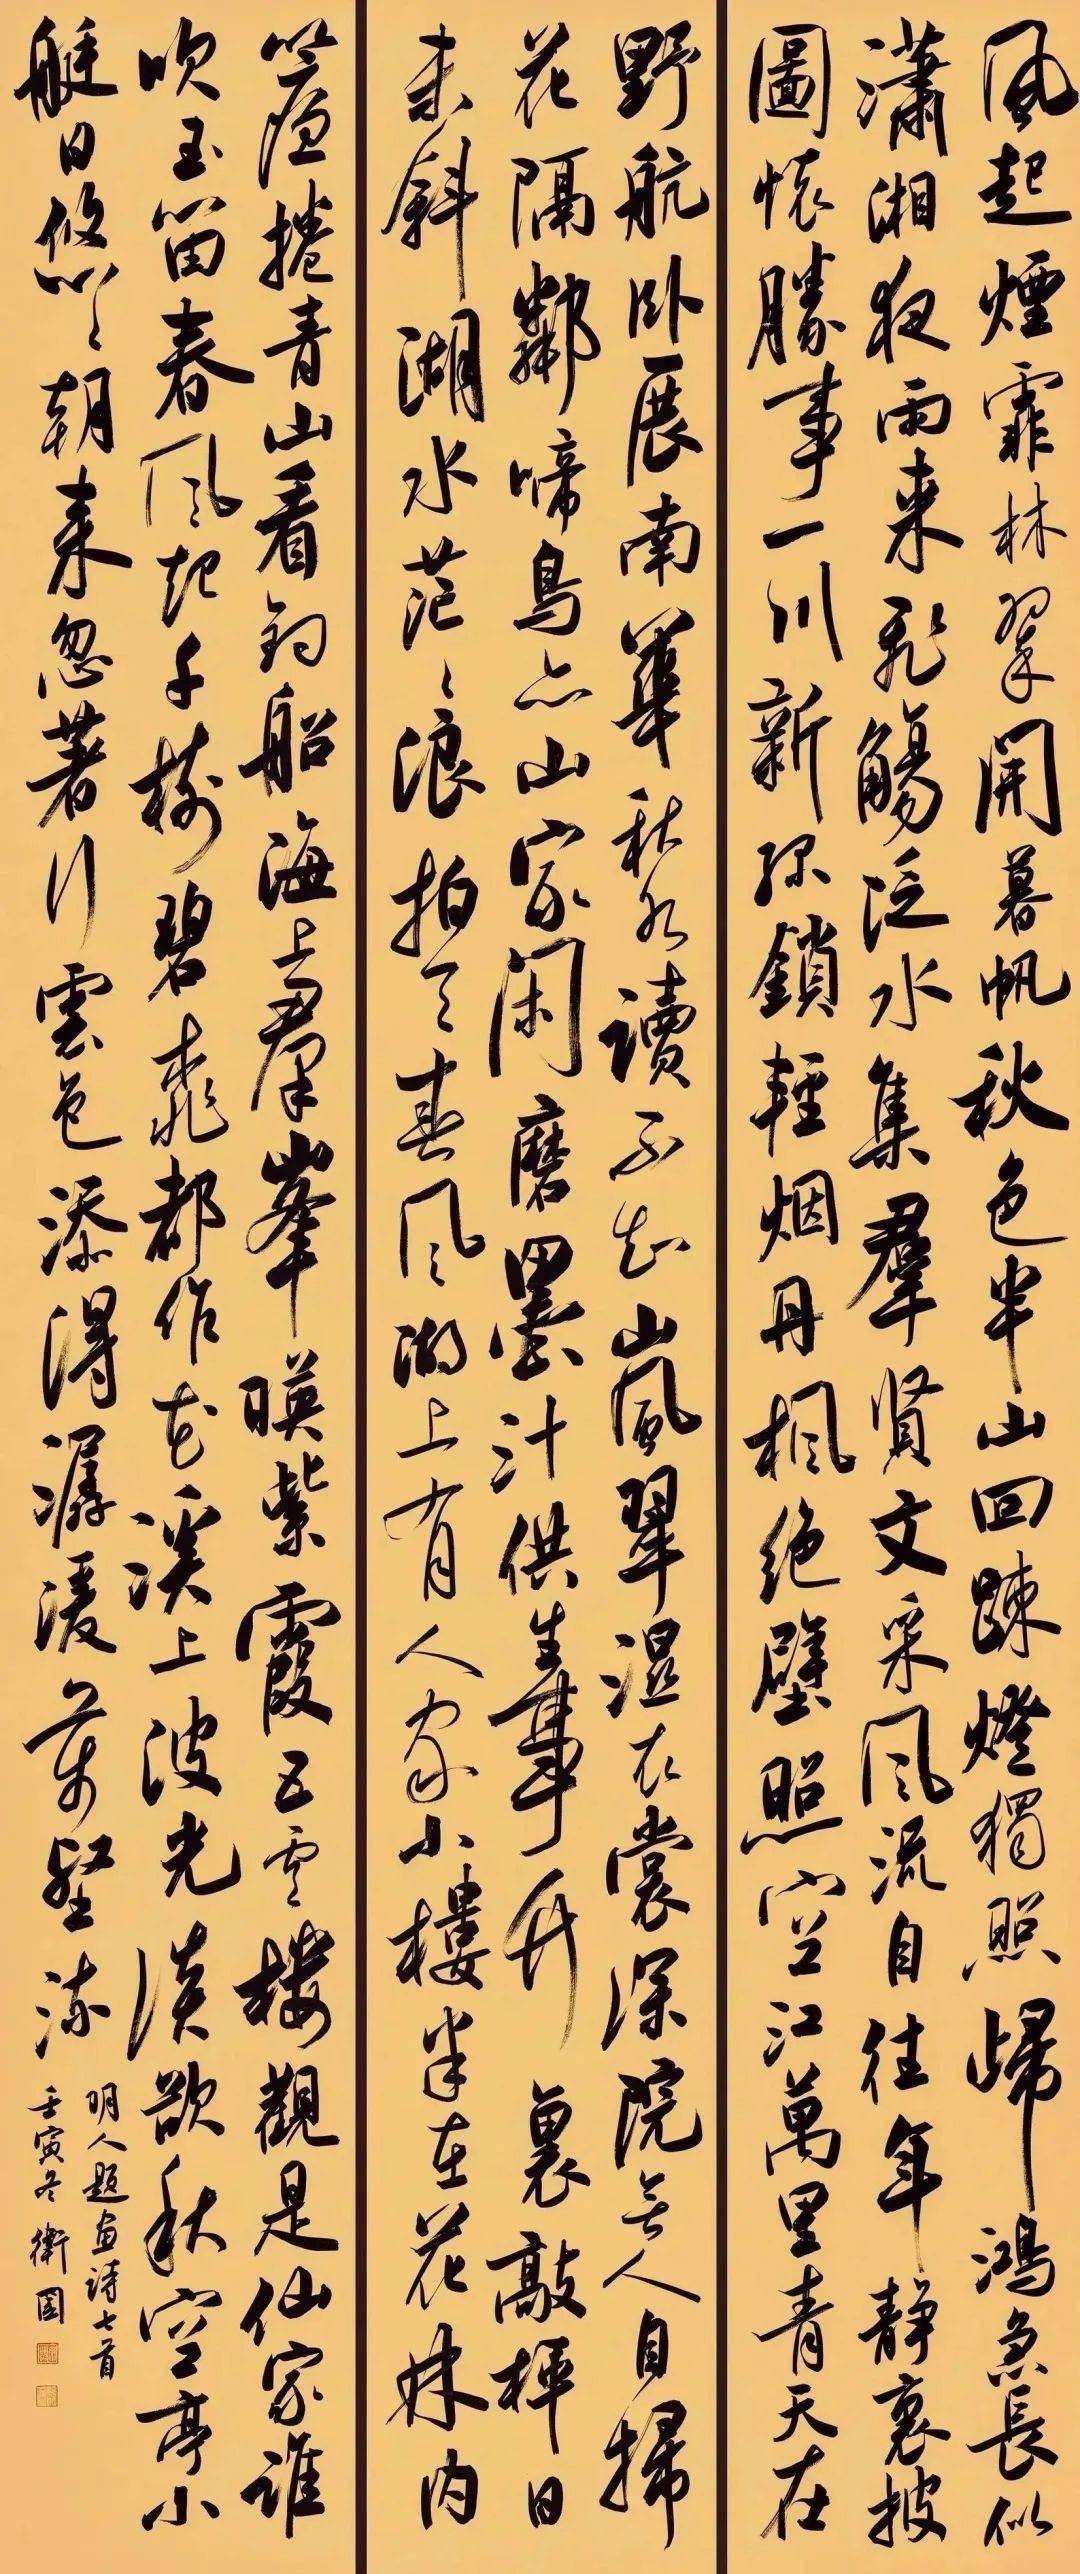 風起煙霏林翠開暮帆秋色半山回疎燈獨照歸鴻急長似
瀟湘夜雨来飛觴泛水集羣賢文采風流自往年靜裏披
圖懷勝事一川新綠鎖輕烟丹楓絕壁照空江萬里青天在
野航卧展南華秋水讀不知山嵐翠濕衣裳深院無人自掃
花隔鄰啼鳥亦山家閑磨墨汁供生事竹裏敲枰日
未斜湖水茫々浪拍天春風湖上有人家小樓半在花林内
簾捲青山看釣船海上羣峯暎紫霞五雲樓觀是仙家誰
吹玉笛春風起千樹碧桃都作花溪上波光淡欲秋空亭小
艇日悠々朝来忽著行雲色添得潺湲萬壑流
明人題畫詩七首
壬寅冬衛國